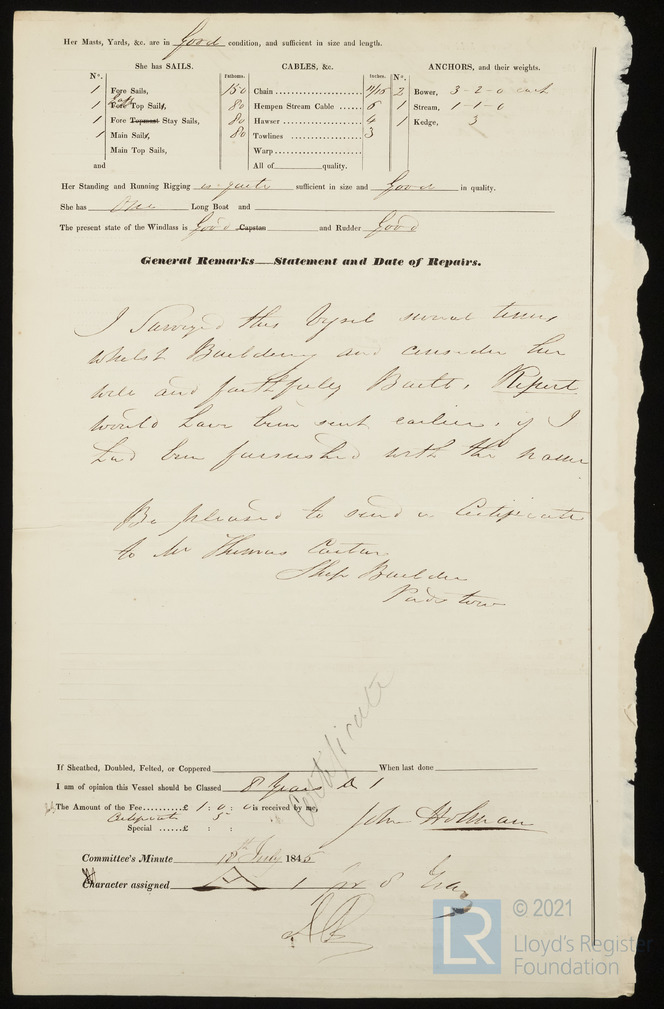 Her Masts, Yards, &c. are in Good condition, and sufficient in size and length.
She has SAILS.
CABLES, &c.
ANCHORS, and their weights.
N°.
Fathoms.
Inches.
N°.
1 Fore Sails, 150 Chain 11/15 2 Bower, 3-2-0 each
1 Fore Gaff Top Sails, 80 Hempen Stream Cable 6 1 Stream, 1-1-0
1 Fore Topmast Stay Sails, 80 Hawser 4 1 Kedge, 3
1 Main Sails, 80 Towlines 3
Main Top Sails, Warp
and All of quality.
Her Standing and Running Rigging is quite sufficient in size and Good in quality.
She has One Long Boat and
The present state of the Windlass is Good Capstan and Rudder Good
General Remarks—Statement and Date of Repairs.
I Surveyed this Vessel several times
whilst Building and consider her
well and faithfully Built. Report
would have been sent earlier, if I
had been furnished with the name
Be pleased to send a Certificate
to Mr Thomas
Ship Builder
Padstow
Certificate
If Sheathed, Doubled, Felted, or Coppered When last done
I am of opinion this Vessel should be Classed 8 Years A 1
The Amount of the Fee £ 1 : 0 : 0 is received by me,
Certificate 5
John Holman
Special £ : :
Committee's Minute 18th July 1845
Character assigned A 1 for 8 Years
© 2021
LR
Lloyd's Register
Foundation